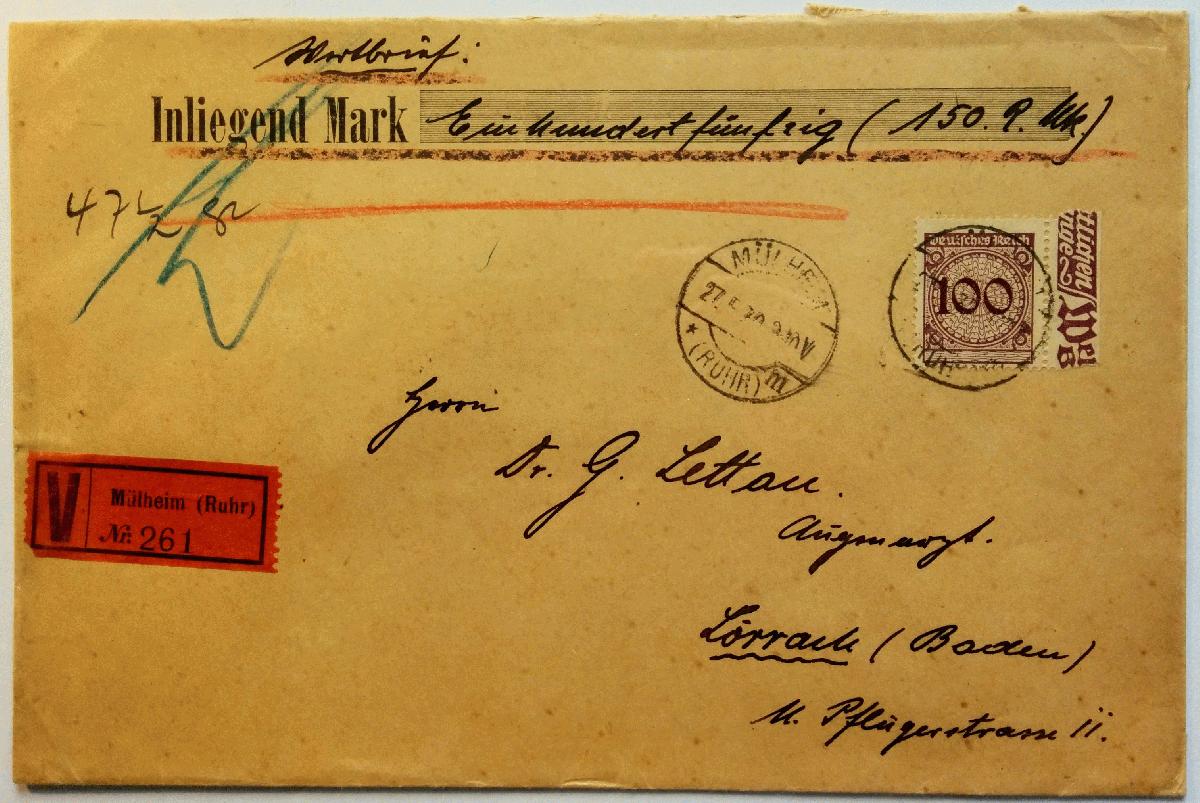 Wertbrief:
Inliegend Mark Einhundertfünfzig (150. R. Mk.)
47½ gr
Deutsches Reich
100
MÜLHEIM
27.5.30.9-10V
* (RUHR) m
Herrn
Dr. G. Lettau.
Augenarzt.
V Mülheim (Ruhr)
Nr. 261
Lörrach (Baden)
U. Pflügerstrasse 11.